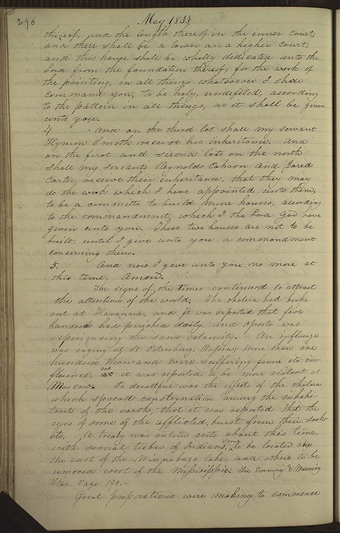 296 May 1833
thereof, and the length thereof, in the inner court;
and there shall be a lower and a higher court,
and this house shall be wholly dedicated unto the
Lord from the foundation thereof, for the work of
the printing, in all things whatsoever I shall
command you, to be holy, undefiled, according
to the pattern in all things, as it shall be given
unto you.
4 And on the third lot shall my servant
Hyrum Smith receive his inheritance. And
on the first and second lots on the north
shall my servants Reynolds Cahoon and Jared
Carter, receive their inheritance, that they may
do the work which I have appointed unto them,
to be a committe to build mine houses, according
to the commandment, which I the Lord God have
given unto you. These two houses are not to be
built until I give unto you a commandment
concerning them.
5. And now I give unto you no more at
this time. Amen.
The signs of the times continued to attract
the attention of the world. The cholera had broke
out at Havanna, and it was reported that five
hundred had perished daily. And Oporto was
experiencing the same calamity. An influenza
was raging at St Petersburg, Moscow, more than one
hundred thousand were suffering from its in-
fluence, and it was reported to be more violent at
Moscow. So dreadful was the effects of the cholera
which spread consternation among the inhabi-
tants of the earth, that it was reported that the
eyes of some of the afflicted, burst from their sock-
ets. A treaty was entered into about this time
with several tribes of Indians, some to be located on
the east of the Winnebago lake and others to be
removed west of the Mississippi. See Evening & Morning
Star Page 190.
Great preparations were making to commence